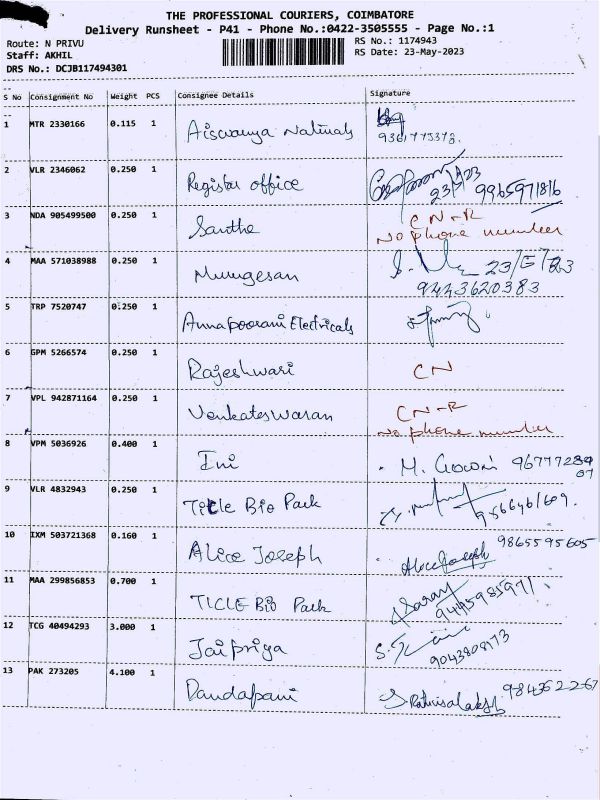 THE PROFESSIONAL COURIERS, COIMBATORE
Delivery Runsheet - P41 - Phone No.:0422-3505555 - Page No.:1
Route: N PRIVU
RS No.: 1174943
Staff: AKHIL
RS Date: 23-May-2023
DRS No.: DCJB117494301
S No Consignment No Weight PCS Consignee Details Signature
1 MTR 2330166 0.115 1 Aiswarya Naturals
2 VLR 2346062 0.250 1 Register office 9965971816
3 NDA 905499500 0.250 1 Santha CN-R
No phone number
4 MAA 571038988 0.250 1 Murugesan 23/5/23
9443620383
5 TRP 7520747 0.250 1 Annapoorani Electricals
6 GPM 5266574 0.250 1 Rajeshwari CN
7 VPL 942871164 0.250 1 Venkateswaran CN-R
No phone number
8 VPM 5036926 0.400 1 Ini M. Gowri
9 VLR 4832943 0.250 1 TICLE Bio Park
10 IXM 503721368 0.160 1 Alice Joseph 9865595605
Alice Joseph
11 MAA 299856853 0.700 1 TICLE Bio Park Saran
9445985971
12 TCG 40494293 3.000 1 Jaipriya
9043808173
13 PAK 273205 4.100 1 Dandapani